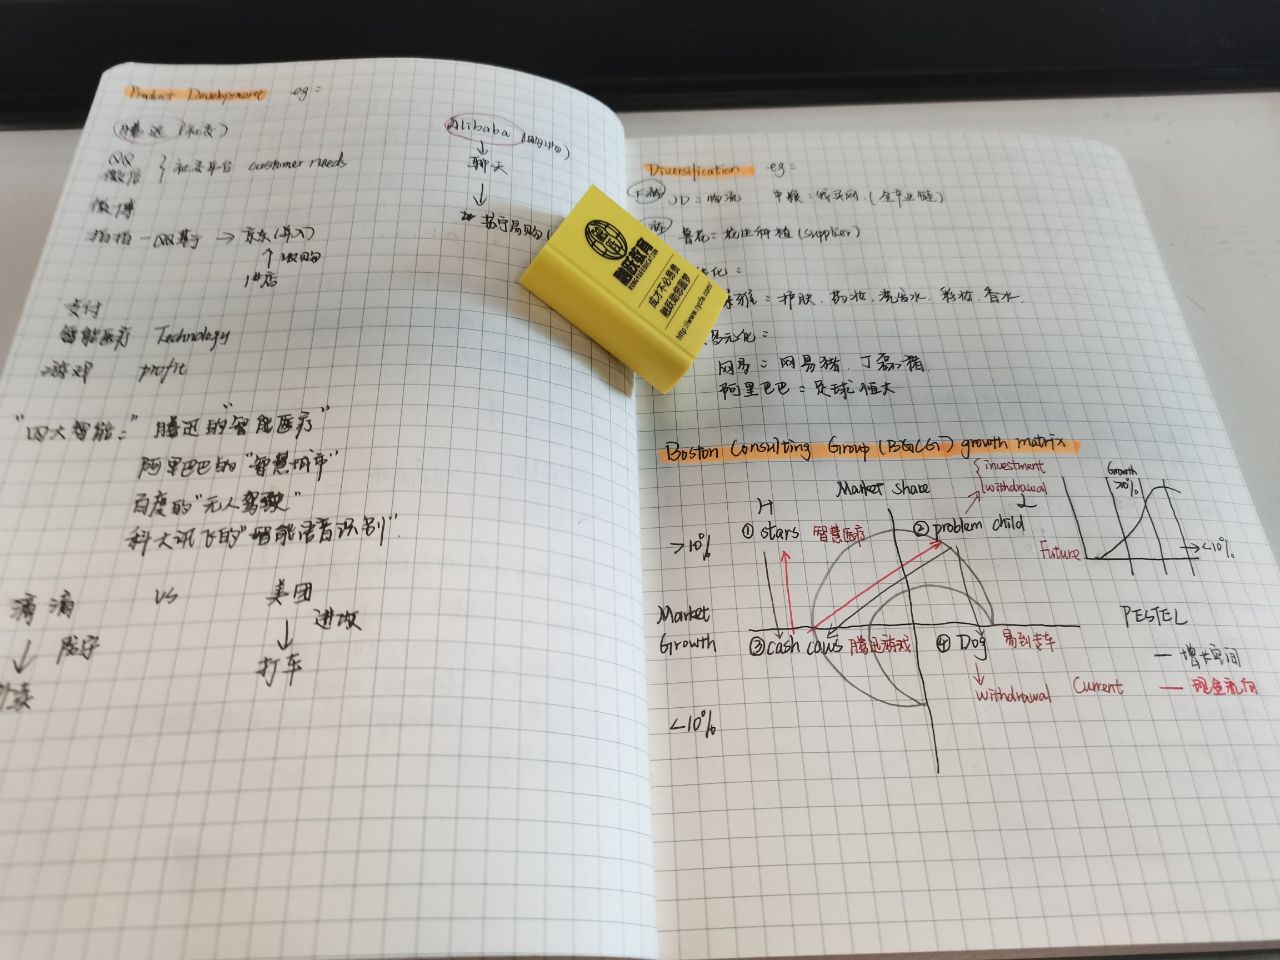 Product Development eg:
腾迅(社交)
QQ
微信
社交平台 customer needs
微博
拍拍—QQ基于→京东(并入)
↑收购
1#店
支付
智能医疗 Technology
游戏 profit
Alibaba
↓
聊天
↓
苏宁易购
"四大智能:" 腾迅的"智能医疗"
阿里巴巴的"智慧城市"
百度的"无人驾驶"
科大讯飞的"智能语音识别"
滴滴 vs 美团
↓ 防守 ↓ 进攻
外卖 打车
Diversification eg:
下游 JD:物流 中粮:我买网(全产业链)
鲁花:花生种植(supplier)
化:
护肤、药妆、洗发水、彩妆、香水
多元化:
网易:网易猪、丁磊猪
阿里巴巴:足球恒大
融跃教育
RONGYUEEDUCATION
成才不必昂贵
融跃助您圆梦
http://www.rycfa.com/
Boston Consulting Group (BGCG) growth matrix
Market share
H L
investment
withdrawal
>10% ① stars 智慧医疗 ② problem child
Market
Growth ③ cash caws 腾迅游戏 ④ Dog 易到专车
↓
withdrawal Current
<10%
Growth
>10%
Future →<10%
PESTEL
— 增长空间
— 现金流向